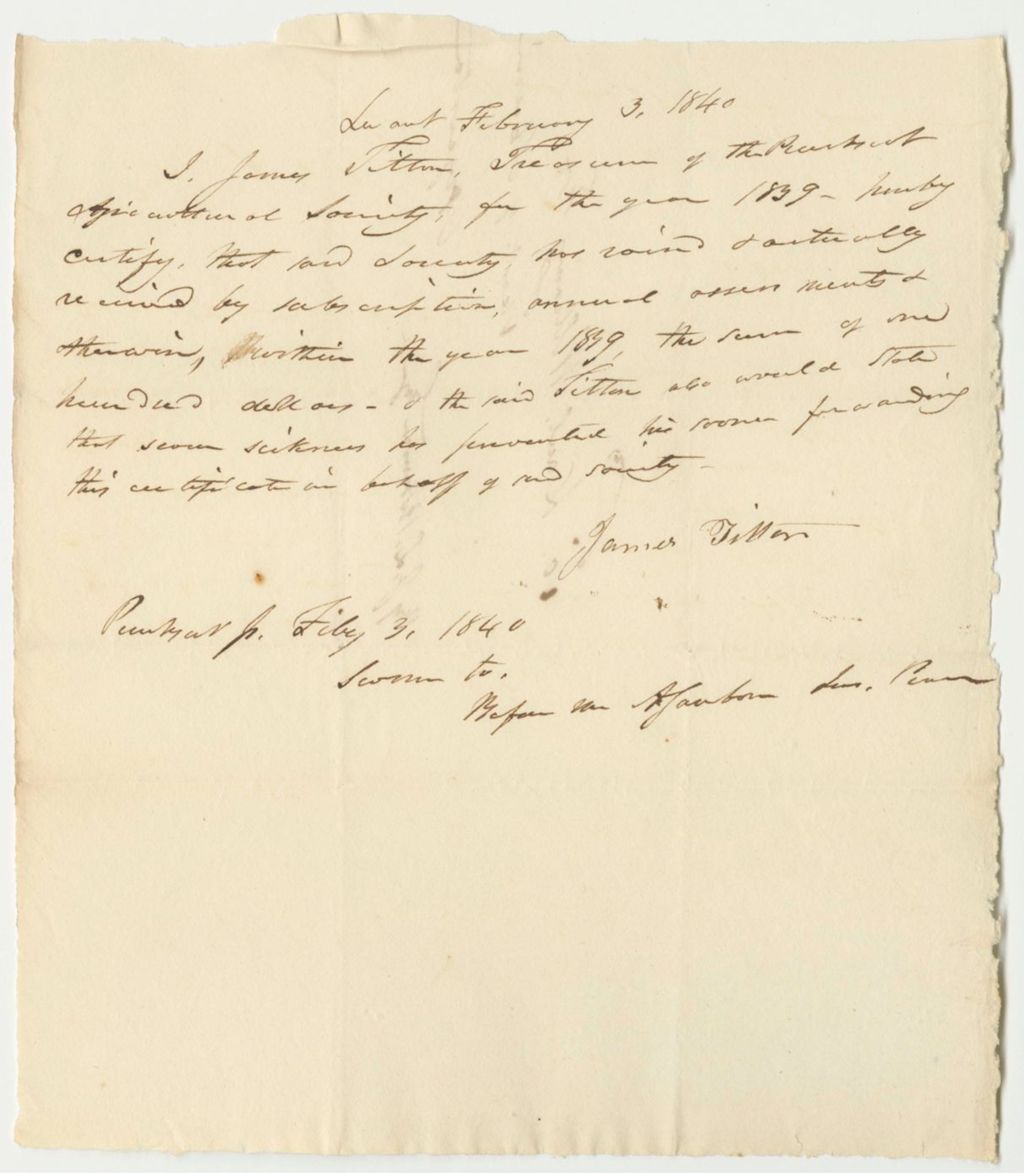 Levant February 3, 1840
I, James Tilton, Treasurer of the Penobscot
Agricultural Society, for the year 1839 - hereby
certify, that said Society has raised & actually
received by subscription, annual assessments &
otherwise, within the year 1839, the sum of one
hundred dollars - & the said Tilton also would state
that severe sickness has prevented his sooner forwarding
this certificate in behalf of said society -
James Tilton
Penobscot ss. Feby 3, 1840
Sworn to,
Before me A Sanborn Jus. Peace